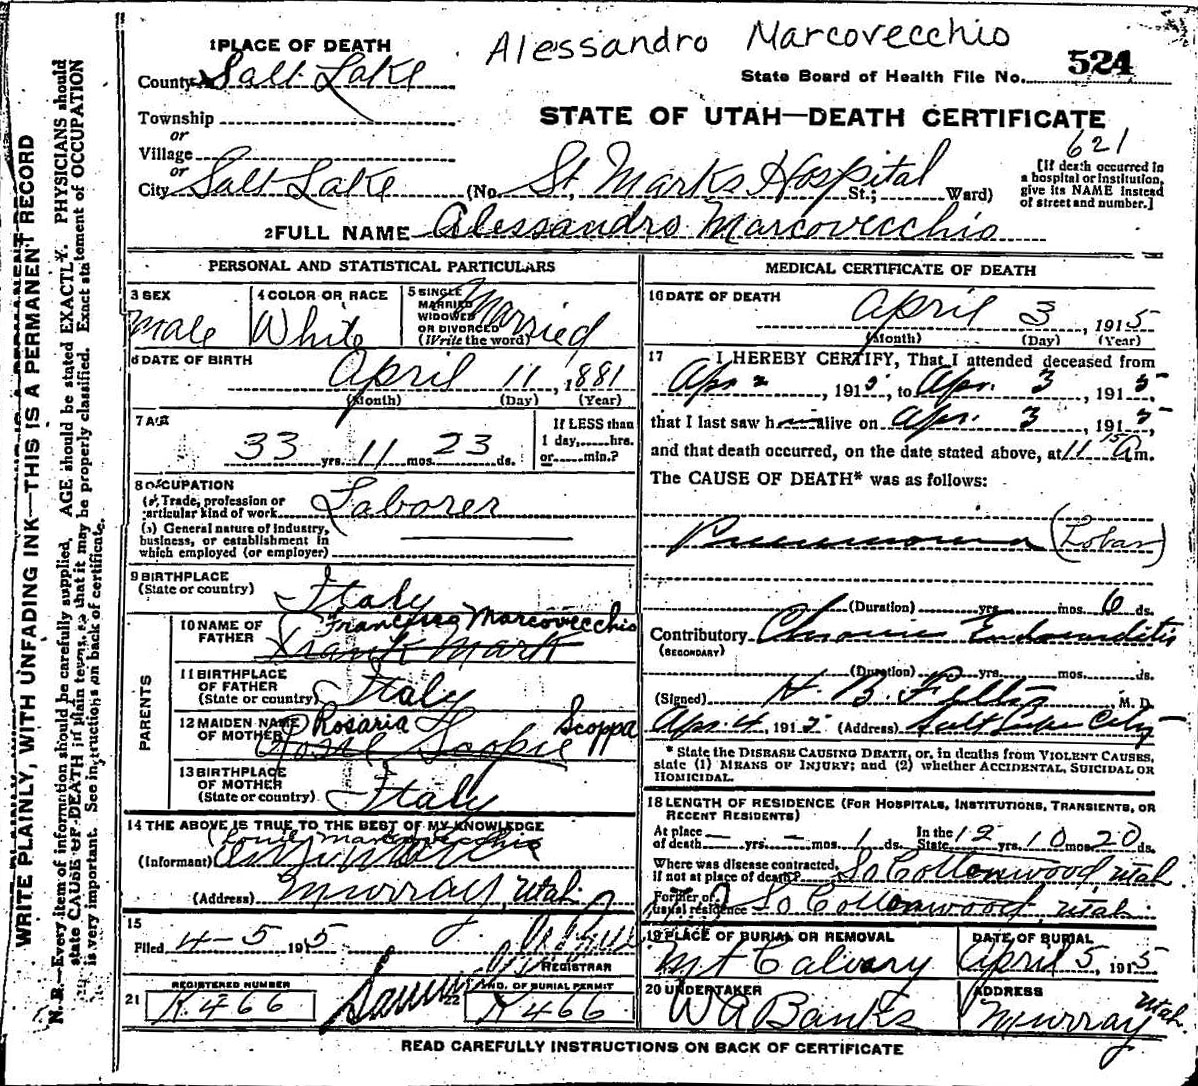 Alessandro Marcovecchio
1 PLACE OF DEATH
County Salt Lake
State Board of Health File No. 524
Township
or
Village
or
City Salt Lake
STATE OF UTAH—DEATH CERTIFICATE
621
(No. St Marks Hospital St.; Ward)
[If death occurred in
a hospital or institution,
give its NAME instead
of street and number.]
2 FULL NAME Alessandro Marcovecchio
PERSONAL AND STATISTICAL PARTICULARS
3 SEX
Male
4 COLOR OR RACE
White
5 SINGLE
MARRIED
WIDOWED
OR DIVORCED
(Write the word)
Married
6 DATE OF BIRTH
April 11, 1881
(Month) (Day) (Year)
7 AGE
33 yrs. 11 mos. 23 ds.
If LESS than
1 day,......hrs.
or......min.?
8 OCCUPATION
(a) Trade, profession or
particular kind of work Laborer
(b) General nature of industry,
business, or establishment in
which employed (or employer)
9 BIRTHPLACE
(State or country)
Italy
PARENTS
10 NAME OF
FATHER
Francisco Marcovecchio
Frank Mark
11 BIRTHPLACE
OF FATHER
(State or country) Italy
12 MAIDEN NAME
OF MOTHER
Rosaria Scoppa
Rosie Scopie
13 BIRTHPLACE
OF MOTHER
(State or country) Italy
14 THE ABOVE IS TRUE TO THE BEST OF MY KNOWLEDGE
Marcovecchio
(Informant)
(Address) Murray, Utah
15
Filed 4-5 1915
REGISTRAR
21
REGISTERED NUMBER
K466
22 NO. OF BURIAL PERMIT
K466
MEDICAL CERTIFICATE OF DEATH
16 DATE OF DEATH
April 3, 1915
(Month) (Day) (Year)
17 I HEREBY CERTIFY, That I attended deceased from
Apr 2, 1915, to Apr. 3, 1915
that I last saw h alive on Apr. 3, 1915,
and that death occurred, on the date stated above, at 11 15 A m.
The CAUSE OF DEATH* was as follows:
Pneumonia (Lobar)
(Duration) yrs. mos. 6 ds.
Contributory Chronic Endocarditis
(SECONDARY)
(Duration) yrs. mos. ds.
(Signed) H. B. M. D.
Apr. 4, 1915 (Address) Salt Lake City
* State the DISEASE CAUSING DEATH, or, in deaths from VIOLENT CAUSES,
state (1) MEANS OF INJURY; and (2) whether ACCIDENTAL, SUICIDAL OR
HOMICIDAL.
18 LENGTH OF RESIDENCE (FOR HOSPITALS, INSTITUTIONS, TRANSIENTS, OR
RECENT RESIDENTS)
At place
of death — yrs. - mos. 1 ds.
In the
State 12 yrs. 10 mos. 20 ds.
Where was disease contracted,
if not at place of death? So Cottonwood Utah
Former or
usual residence So Cottonwood, Utah
19 PLACE OF BURIAL OR REMOVAL
Mt Calvary
DATE OF BURIAL
April 5, 1915
20 UNDERTAKER
W A Banks
ADDRESS
Murray Utah
READ CAREFULLY INSTRUCTIONS ON BACK OF CERTIFICATE
WRITE PLAINLY, WITH UNFADING INK—THIS IS A PERMANENT RECORD
N. B.—Every item of information should be carefully supplied. AGE should be stated EXACTLY. PHYSICIANS should
state CAUSE OF DEATH in plain terms, so that it may be properly classified. Exact statement of OCCUPATION
is very important. See instructions on back of certificate.